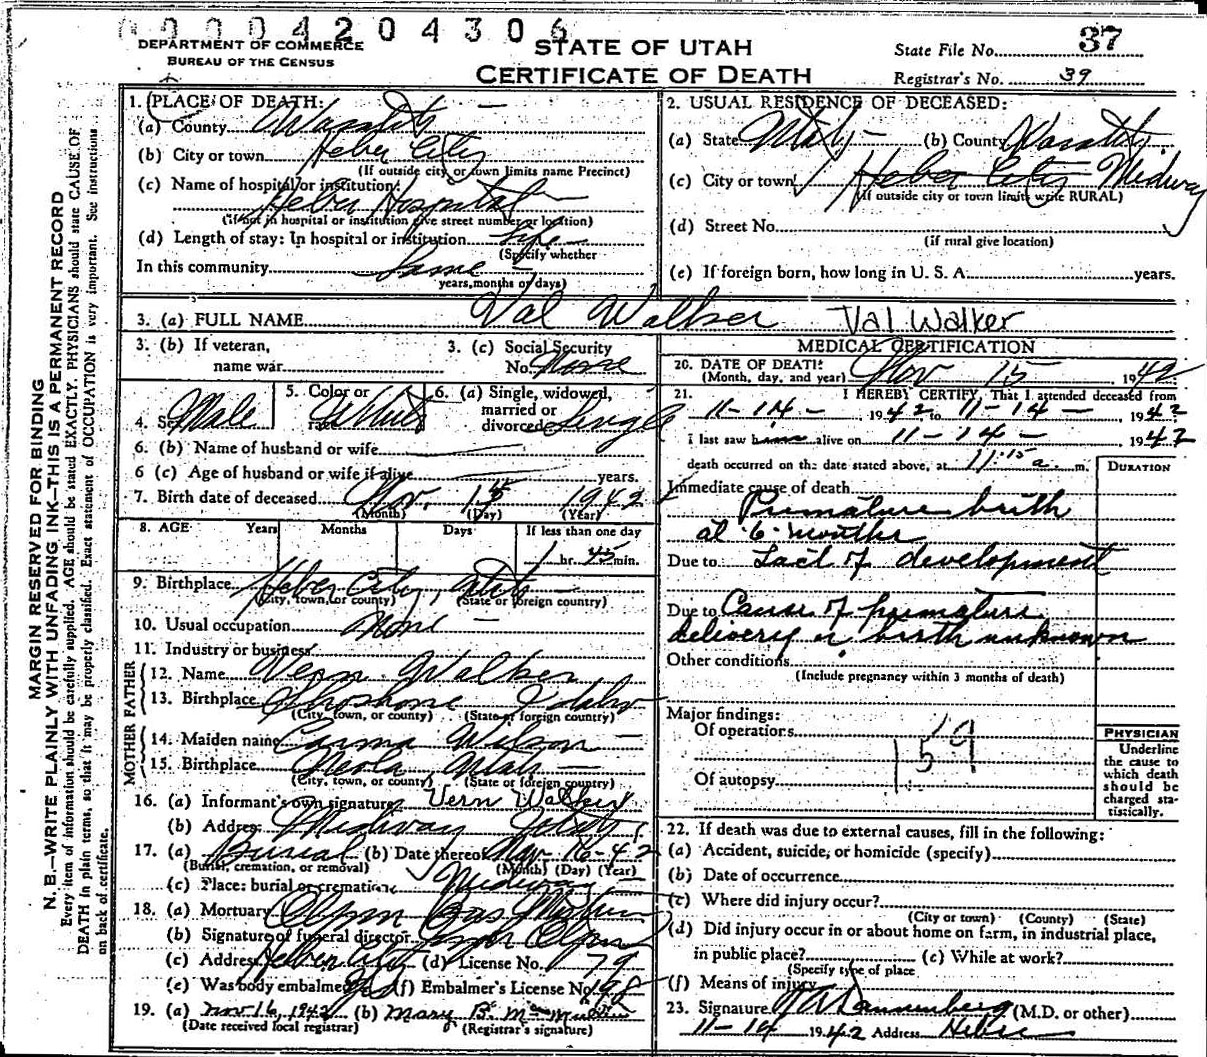 0000420430 6
DEPARTMENT OF COMMERCE
BUREAU OF THE CENSUS
STATE OF UTAH
CERTIFICATE OF DEATH
State File No. 37
Registrar's No. 39
MARGIN RESERVED FOR BINDING
N. B.—WRITE PLAINLY WITH UNFADING INK—THIS IS A PERMANENT RECORD
Every item of information should be carefully supplied. AGE should be stated EXACTLY. PHYSICIANS should state CAUSE OF
DEATH in plain terms, so that it may be properly classified. Exact statement of OCCUPATION is very important. See instructions
on back of certificate.
1. PLACE OF DEATH:
(a) County Wasatch
(b) City or town Heber City
(If outside city or town limits name Precinct)
(c) Name of hospital or institution:
Heber Hospital
(If not in hospital or institution give street number or location)
(d) Length of stay: In hospital or institution Life
(Specify whether
In this community Same
years, months or days)
2. USUAL RESIDENCE OF DECEASED:
(a) State Utah (b) County Wasatch
(c) City or town Heber City Midway
(If outside city or town limits write RURAL)
(d) Street No.
(if rural give location)
(e) If foreign born, how long in U. S. A. years.
3. (a) FULL NAME Val Walker Val Walker
3. (b) If veteran,
name war
3. (c) Social Security
No. None
4. Sex Male
5. Color or
race White
6. (a) Single, widowed,
married or
divorced Single
6. (b) Name of husband or wife
6 (c) Age of husband or wife if alive years.
7. Birth date of deceased Nov. 1942
(Month) (Day) (Year)
8. AGE Years Months Days If less than one day
1 hr. 45 min.
9. Birthplace Heber City, Utah
(City, town, or county) (State or foreign country)
10. Usual occupation None
11. Industry or business
FATHER
12. Name Vern Walker
13. Birthplace Shoshone Idaho
(City, town, or county) (State or foreign country)
MOTHER
14. Maiden name Carma Wilson
15. Birthplace Neola Utah
(City, town, or county) (State or foreign country)
16. (a) Informant's own signature Vern Walker
(b) Address Midway Utah
17. (a) Burial (b) Date thereof Nov-16-42
(Burial, cremation, or removal) (Month) (Day) (Year)
(c) Place: burial or cremation Midway
18. (a) Mortuary Olpin Bros
(b) Signature of funeral director Olpin
(c) Address Heber City (d) License No. 79
(e) Was body embalmed (f) Embalmer's License No. 198
19. (a) Nov 16, 1942 (b) Mary B. McMullin
(Date received local registrar) (Registrar's signature)
MEDICAL CERTIFICATION
20. DATE OF DEATH:
(Month, day, and year) Nov 15, 1942
21. I HEREBY CERTIFY, That I attended deceased from
11-14- 1942 to 11-14- 1942
I last saw him alive on 11-14- 1942
death occurred on the date stated above, at 11:15 a. m.
DURATION
Immediate cause of death
Premature birth
at 6 months
Due to Lack of development
Due to Cause of premature
delivery or birth unknown
Other conditions
(Include pregnancy within 3 months of death)
Major findings:
Of operations
159
Of autopsy
PHYSICIAN
Underline
the cause to
which death
should be
charged sta-
tistically.
22. If death was due to external causes, fill in the following:
(a) Accident, suicide, or homicide (specify)
(b) Date of occurrence
(c) Where did injury occur?
(City or town) (County) (State)
(d) Did injury occur in or about home on farm, in industrial place,
in public place? (e) While at work?
(Specify type of place
(f) Means of injury
23. Signature Dannenberg (M.D. or other)
11-14 1942 Address Heber